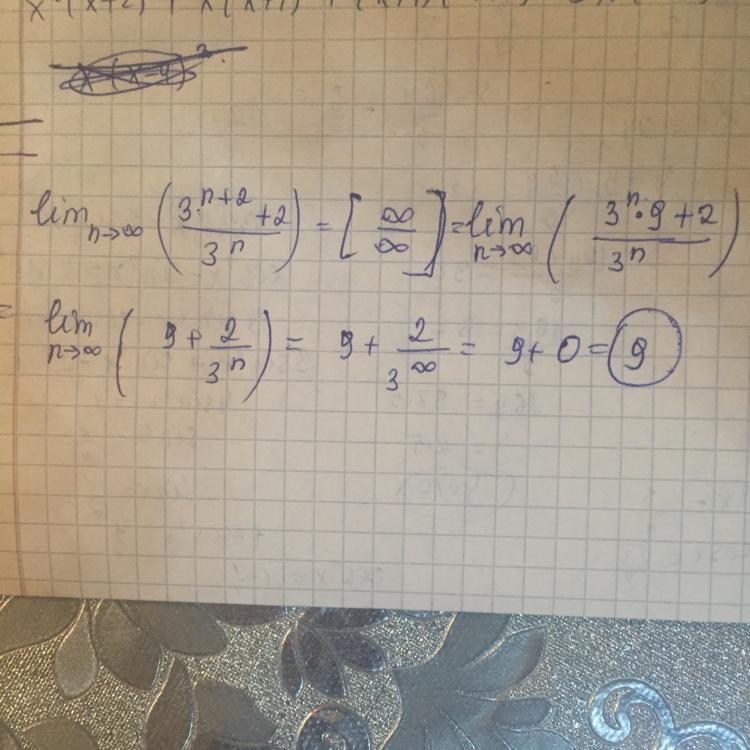 lim n→∞ (3^{n+2} + 2 / 3^n) = [∞/∞] = lim n→∞ (3^n · 9 + 2 / 3^n)
= lim n→∞ (9 + 2/3^n) = 9 + 2/3^∞ = 9 + 0 = 9